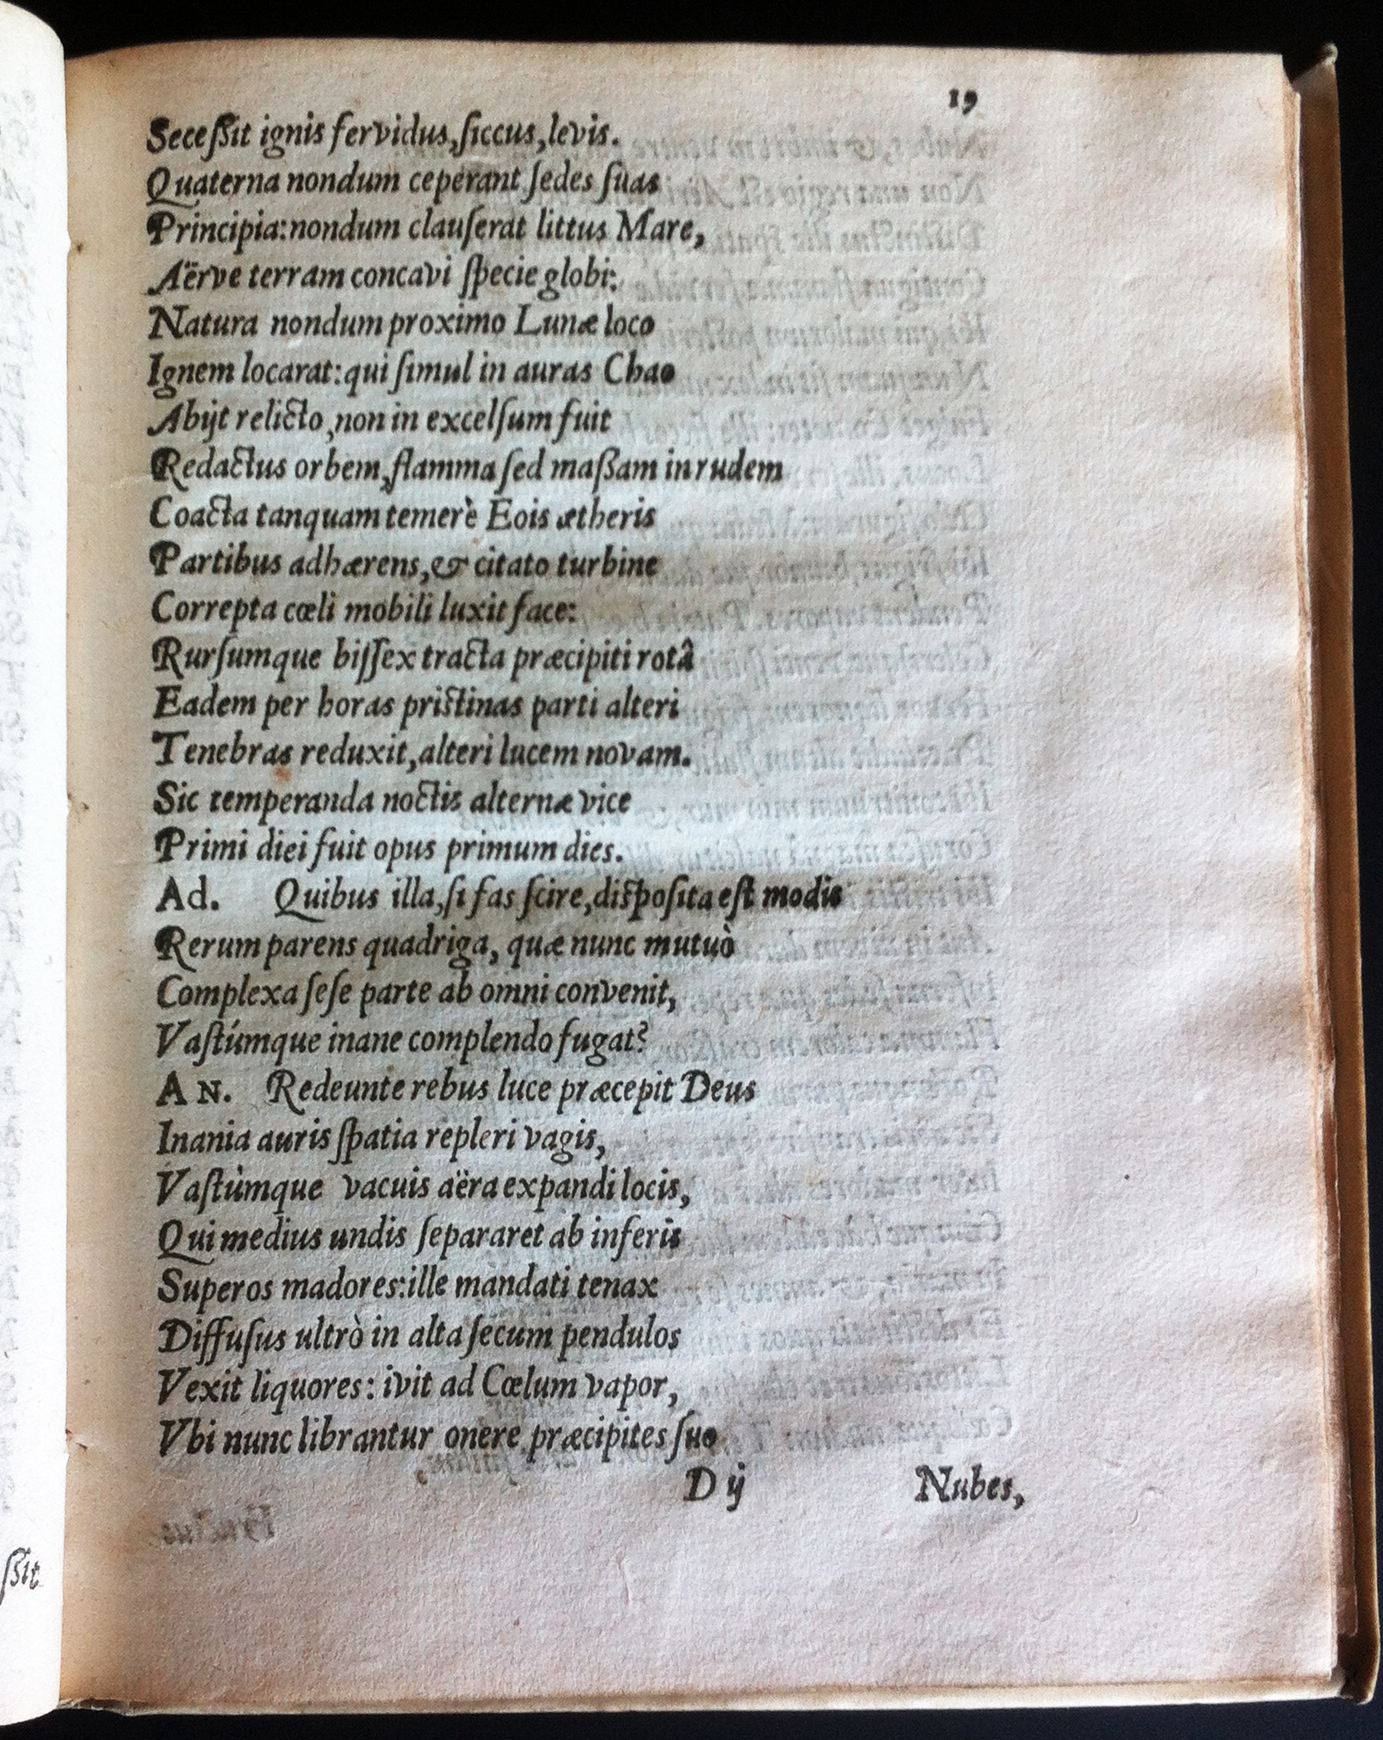 19
Seceſſit ignis fervidus, ſiccus, levis.
Quaterna nondum ceperant ſedes ſuas
Principia: nondum clauſerat littus Mare,
Aërve terram concavi ſpecie globi:
Natura nondum proximo Lunæ loco
Ignem locarat: qui ſimul in auras Chao
Abijt relicto, non in excelſum fuit
Redactus orbem, flamma ſed maßam in rudem
Coacta tanquam temerè Eois ætheris
Partibus adhærens, & citato turbine
Correpta cœli mobili luxit face:
Rurſumque biſſex tracta præcipiti rotâ
Eadem per horas priſtinas parti alteri
Tenebras reduxit, alteri lucem novam.
Sic temperanda noctis alternæ vice
Primi diei fuit opus primum dies.
Ad. Quibus illa, ſi fas ſcire, diſpoſita eſt modis
Rerum parens quadriga, quæ nunc mutuò
Complexa ſeſe parte ab omni convenit,
Vaſtúmque inane complendo fugat?
AN. Redeunte rebus luce præcepit Deus
Inania auris ſpatia repleri vagis,
Vaſtùmque vacuis aëra expandi locis,
Qui medius undis ſepararet ab inferis
Superos madores: ille mandati tenax
Diffuſus ultrò in alta ſecum pendulos
Vexit liquores: ivit ad Cœlum vapor,
Vbi nunc librantur onere præcipites ſuo
D ij Nubes,
ſſit